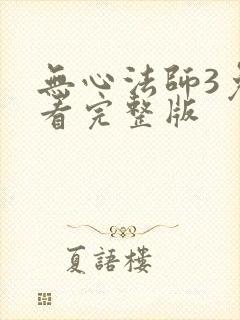 無心法師3
看完整版
夏語樓